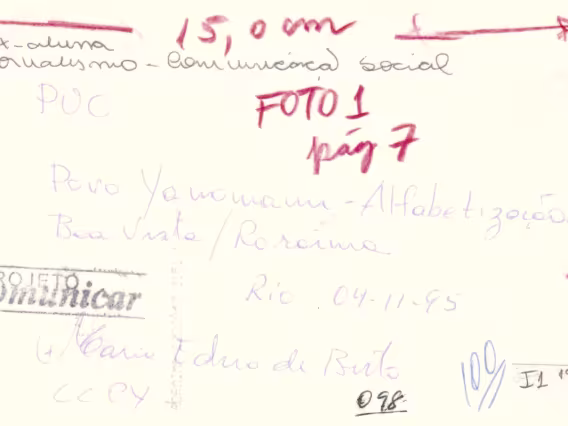 15,0 cm
x-aluna
ornalismo - Comunicaçã social
PUC
FOTO 1
pág 7
Povo Yanomami - Alfabetização
Boa Vista / Roraima
Rio 04-11-95
ROJETO
omunicar
Maria Edna de Brito
CCPY
098
100
I1